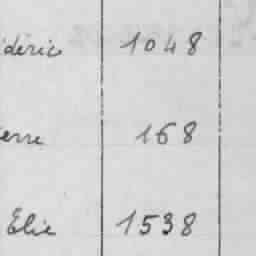 déric 1048
erre 168
Elie 1538